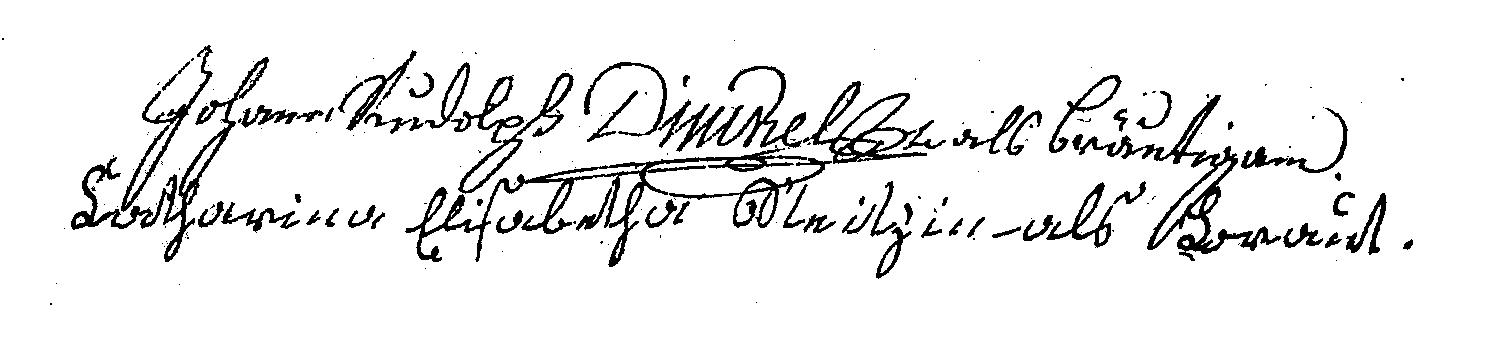 Johann Rudolph Dinckel als bräutigam.
Catharina Elisabetha als braut.